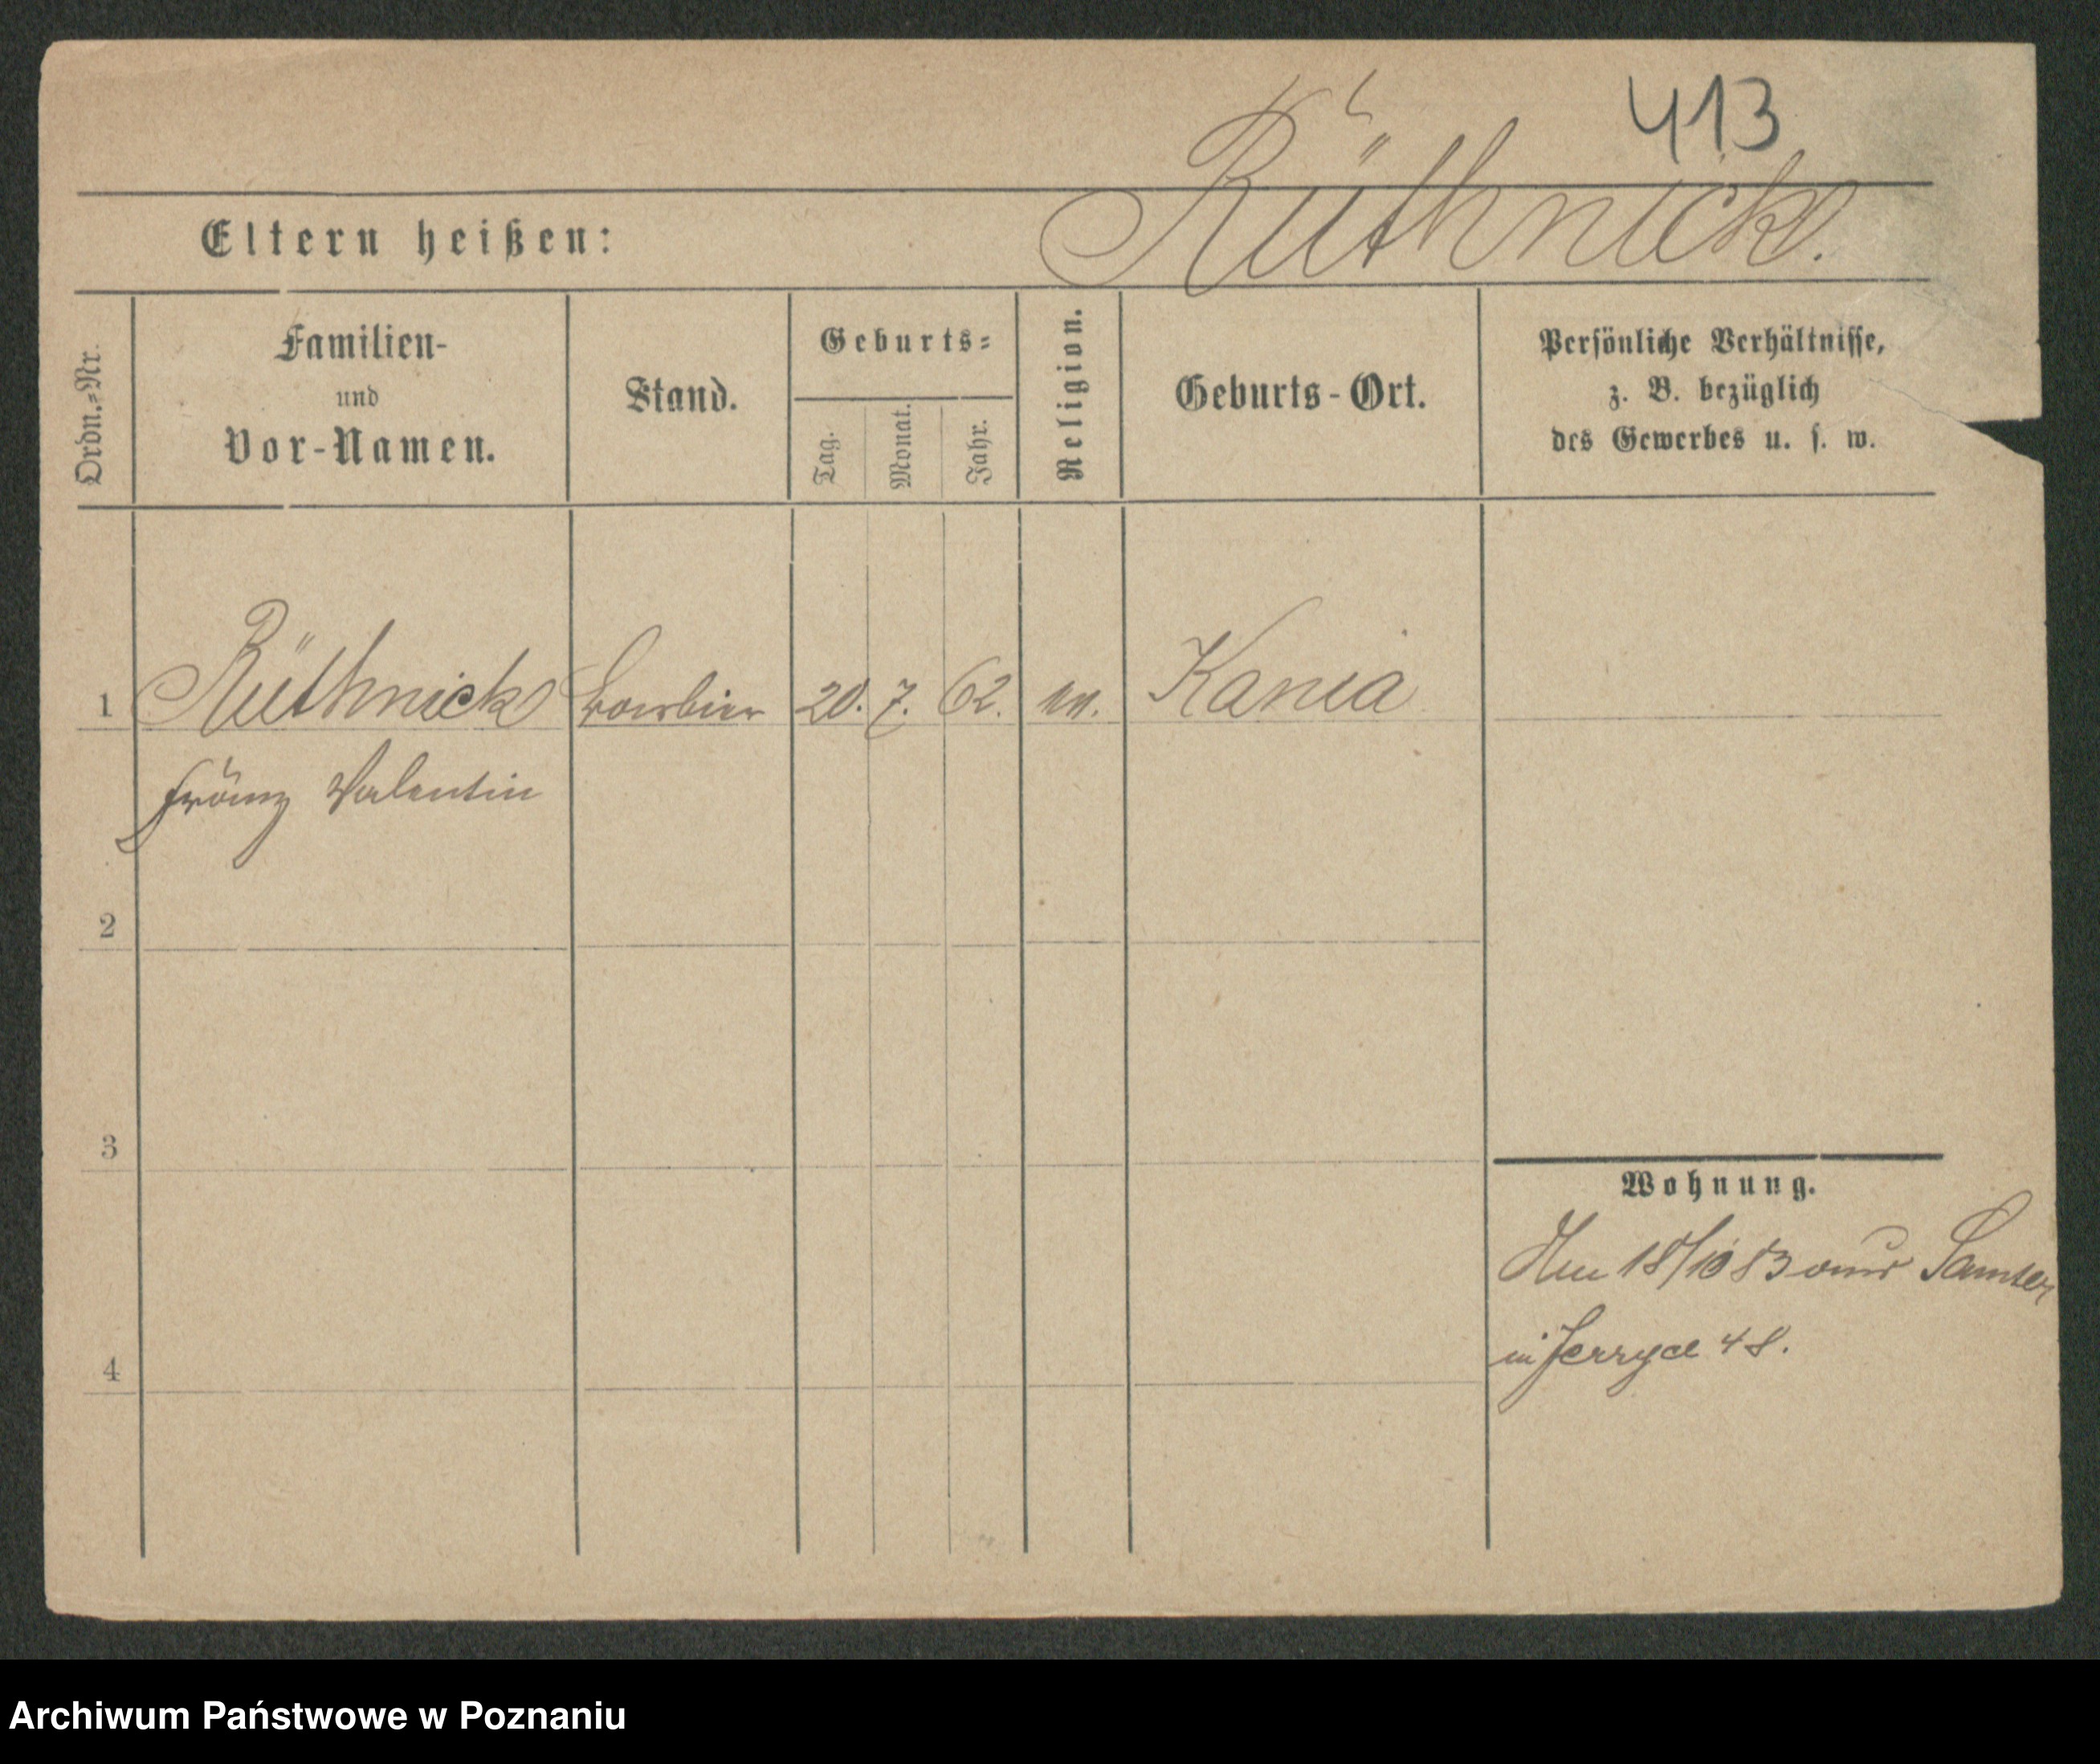 413
Rüthnick.
Eltern heißen:
Ordn.-Nr.
Familien-
und
Vor-Namen.
Stand.
Geburts-
Tag.
Monat.
Jahr.
Religion.
Geburts-Ort.
Persönliche Verhältnisse,
z. B. bezüglich
des Gewerbes u. s. w.
1 Rüthnick Barbier 20. 7. 62. Kania
Franz Valentin
2
3
Wohnung.
18/10 83 aus Samter
in Jerzyce 48.
4
Archiwum Państwowe w Poznaniu